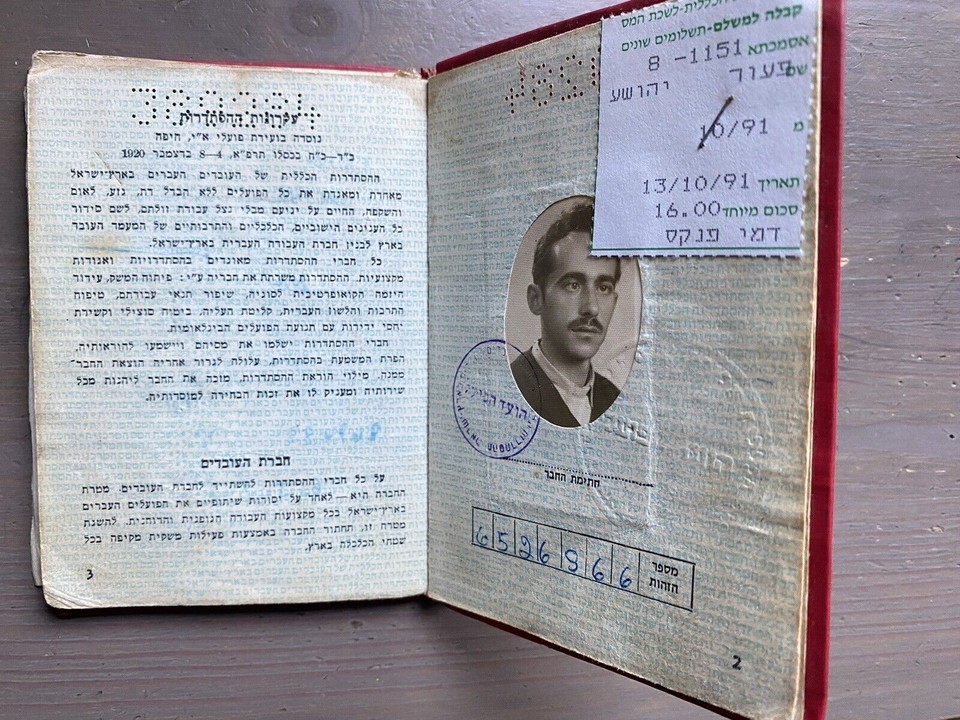 הכללית-לשכת המס
קבלה למשלם-תשלומים שונים
אסמכתא 1151- 8
שם
יהושע
מ 10/91
תאריך 13/10/91
סכום מיוחד 16.00
דמי פנקס
הועד הפועל
חתימת החבר
מספר
הזהות
6526966
2
עקרונות ההסתדרות
נוסדה בועידת פועלי א"י, חיפה
כ"ד—כ"ח בכסלו תרפ"א, 4—8 בדצמבר 1920
ההסתדרות הכללית של העובדים העברים בארץ־ישראל
מאחדת ומאגדת את כל הפועלים ללא הבדל דת, גזע, לאום
והשקפה, החיים על יגיעם מבלי נצל עבודת זולתם, לשם סידור
כל הענינים הישוביים, הכלכליים והתרבותיים של המעמד העובד
בארץ לבנין חברת העבודה העברית בארץ־ישראל.
כל חברי ההסתדרות מאוגדים בהסתדרויות ואגודות
מקצועיות. ההסתדרות משרתת את חבריה ע"י: פיתוח המשק, עידוד
היזמה הקואופרטיבית לסוגיה, שיפור תנאי עבודתם, טיפוח
התרבות והלשון העברית, קליטת העליה, ביטוח סוציאלי וקשירת
יחסי ידידות עם תנועת הפועלים הבינלאומית.
חברי ההסתדרות ישלמו את מסיהם ויישמעו להוראותיה.
הפרת המשמעת בהסתדרות, עלולה לגרור אחריה הוצאת החבר
ממנה. מילוי הוראת ההסתדרות, מזכה את החבר ליהנות מכל
שירותיה ומעניק לו את זכות הבחירה למוסדותיה.
חברת העובדים
על כל חברי ההסתדרות להשתייך לחברת העובדים. מטרת
החברה היא — לאחד על יסודות שיתופיים את הפועלים העברים
בארץ־ישראל בכל מקצועות העבודה הגופנית והרוחנית. להשגת
מטרה זו, תחתור החברה באמצעות פעילות משקית מקיפה בכל
שטחי הכלכלה בארץ.
3